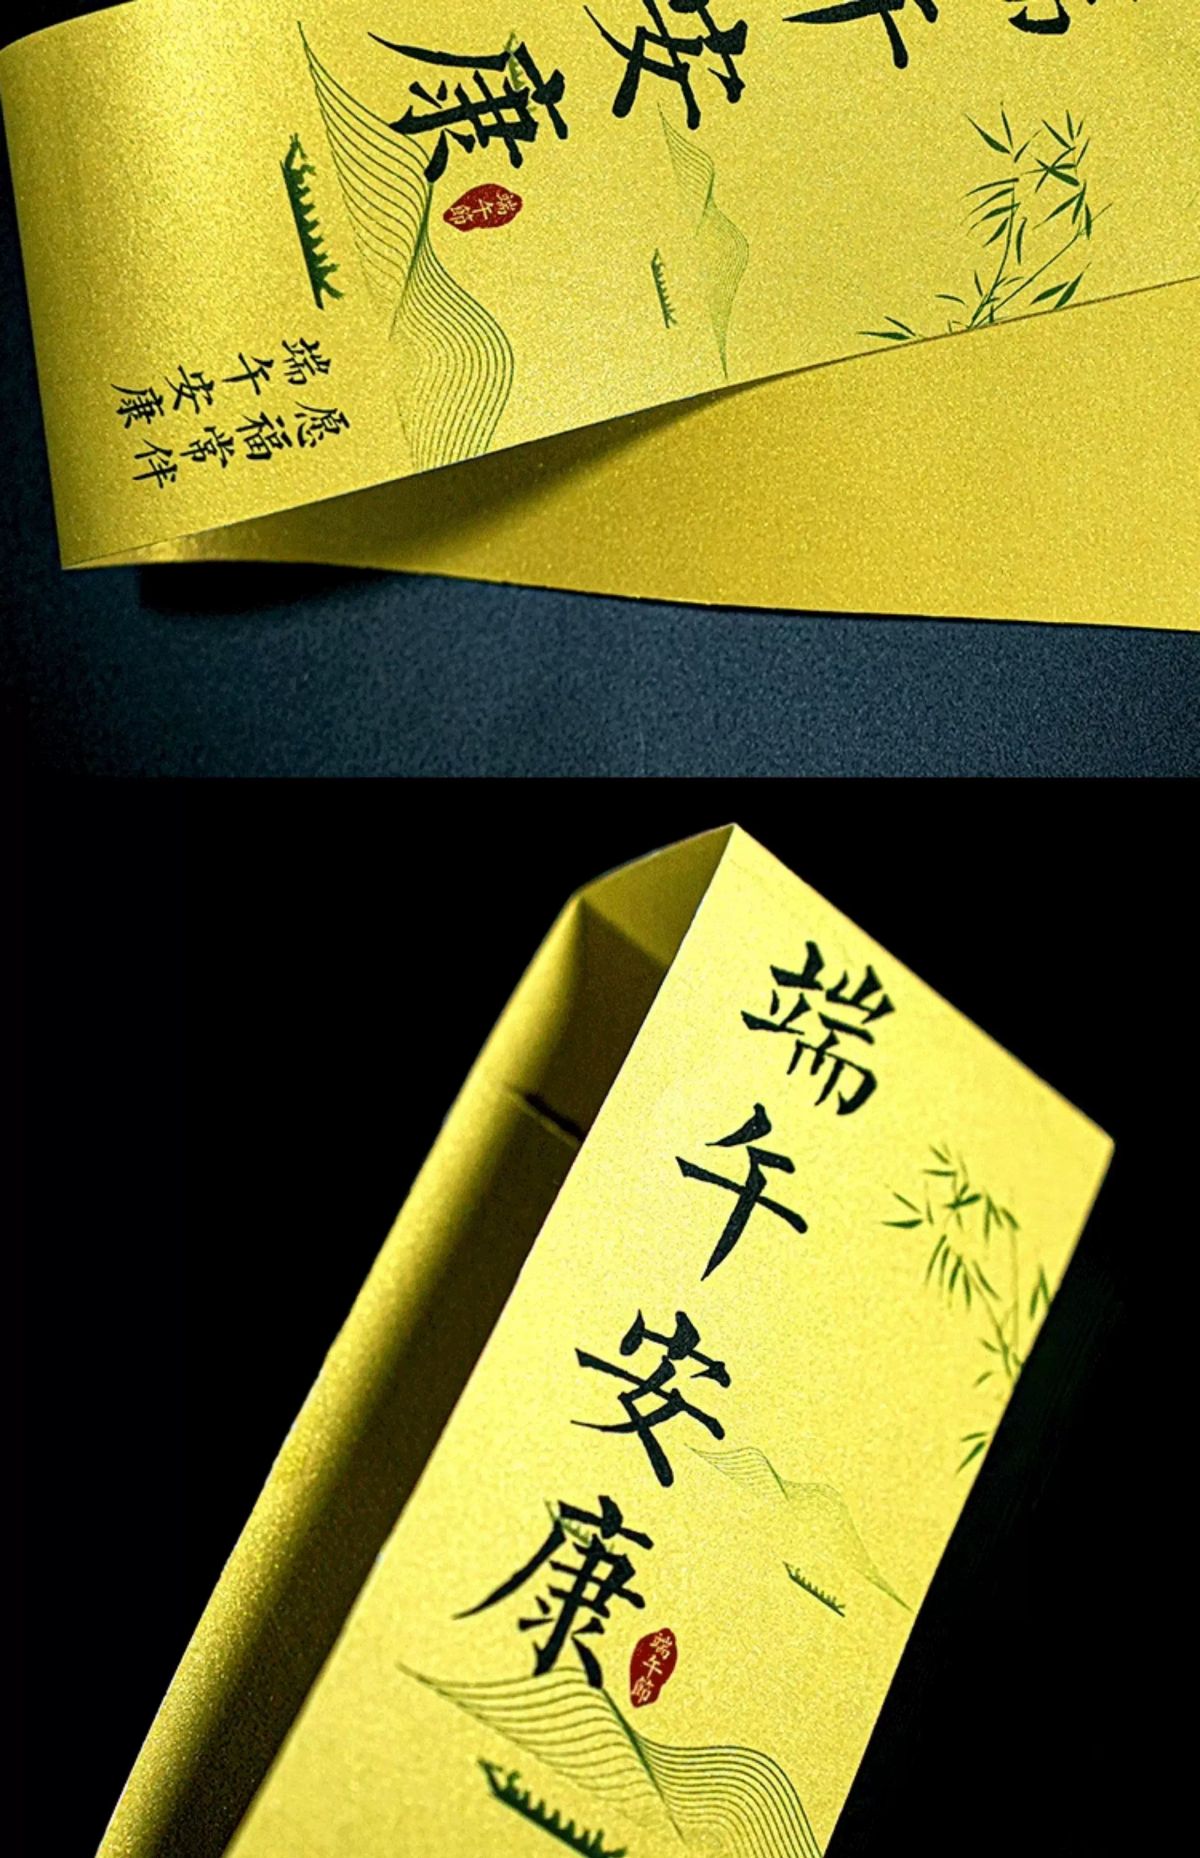 端午安康
端午節
愿福常伴
端午安康
端午安康
端午節